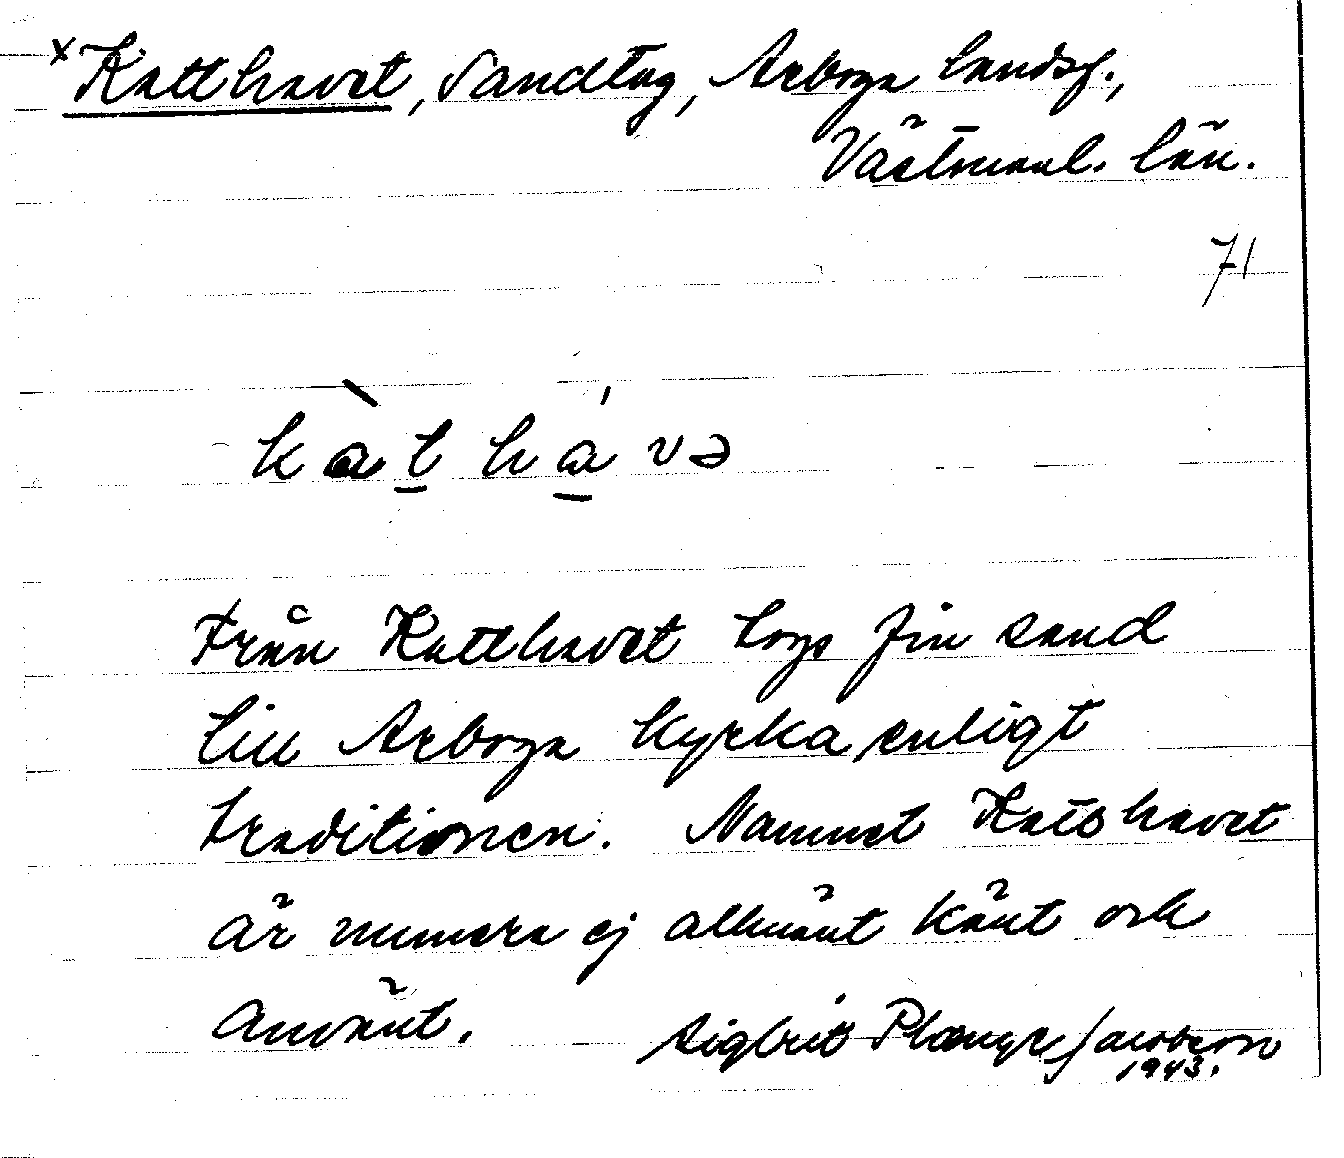 x Katthavet, Sandtag, Arboga landsf.,
Västmanl. län.
71
kàt há və
Från Katthavet togs fin sand
till Arboga kyrka enligt
traditionen. Namnet Katthavet
är numera ej allmänt känt och
använt.
Sigbrit Plænge Jacobson
1943.